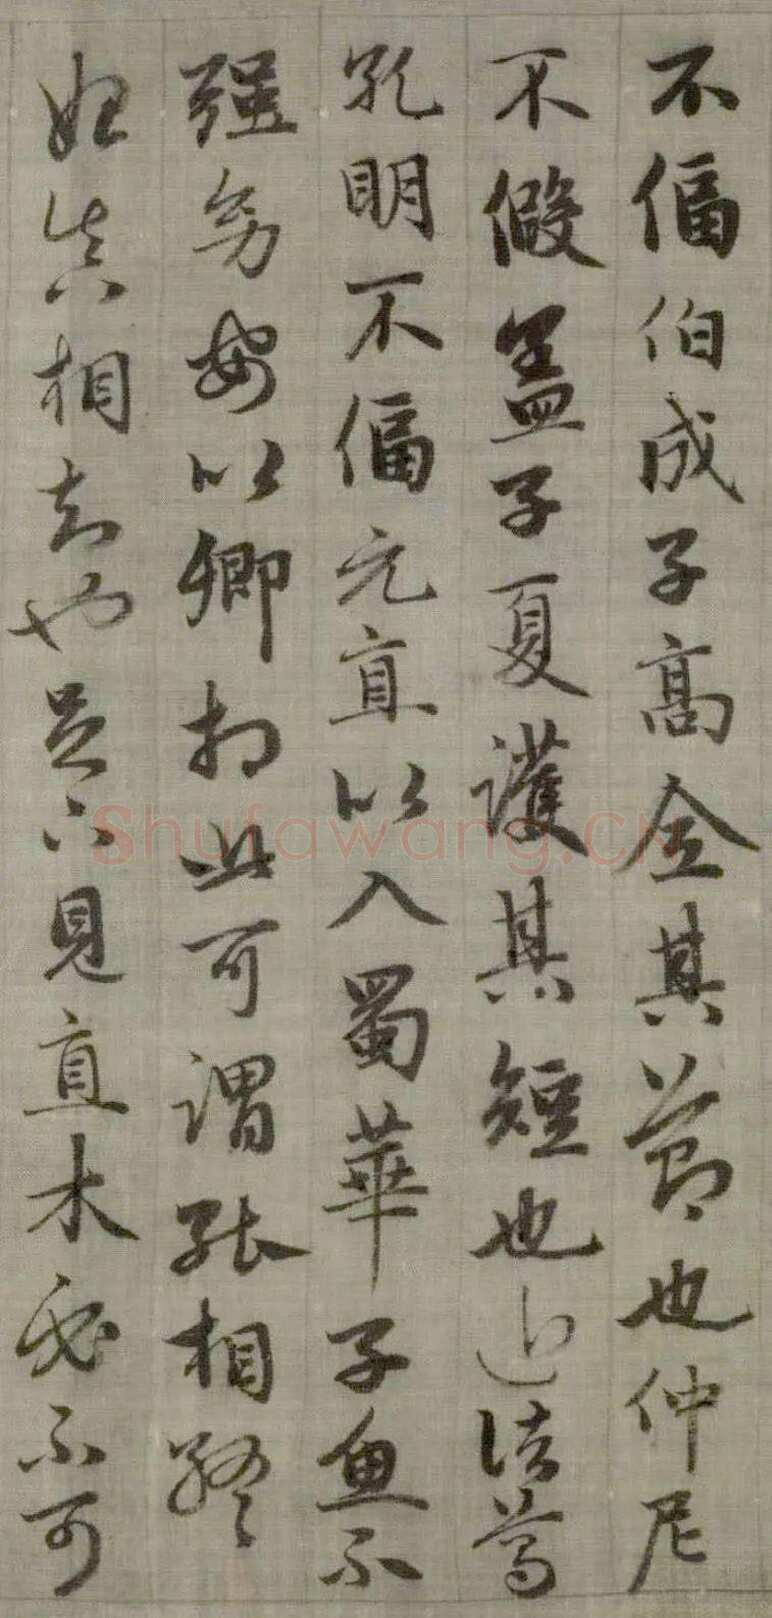 不偪伯成子高全其節也仲尼
不假盖子夏護其短也近諸葛
孔明不偪元直以入蜀華子魚不
强幼安以卿相此可謂能相終
始真相知也足下見直木必不可
Shufawang.CN